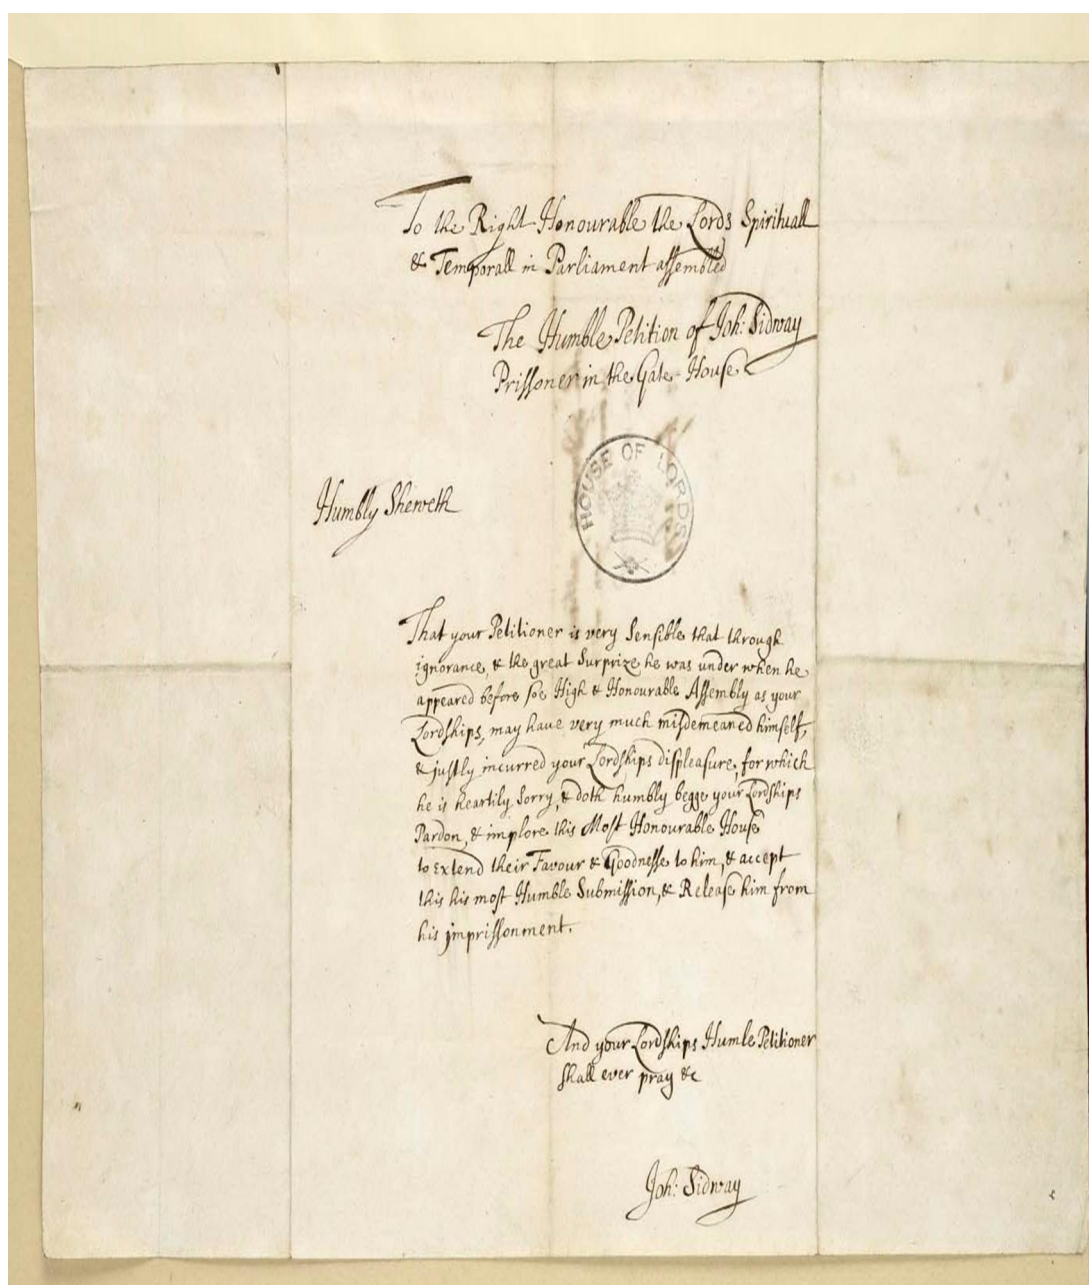 To the Right Honourable the Lords Spirituall
& Temporall in Parliament assembled
The Humble Petition of Joh: Sidway
Prissoner in the Gate-House
HOUSE OF LORDS
Humbly Sheweth
That your Petitioner is very Sensible that through
ignorance, & the great Surprize he was under when he
appeared before soe High & Honourable Assembly as your
Lordships, may have very much misdemeaned himself,
& justly incurred your Lordships displeasure, for which
he is heartily Sorry, & doth humbly begge your Lordships
Pardon, & implore this Most Honourable House
to Extend their Favour & Goodnesse to him, & accept
this his most Humble Submission, & Release him from
his imprissonment.
And your Lordships Humle Petitioner
shall ever pray &c
Joh: Sidway